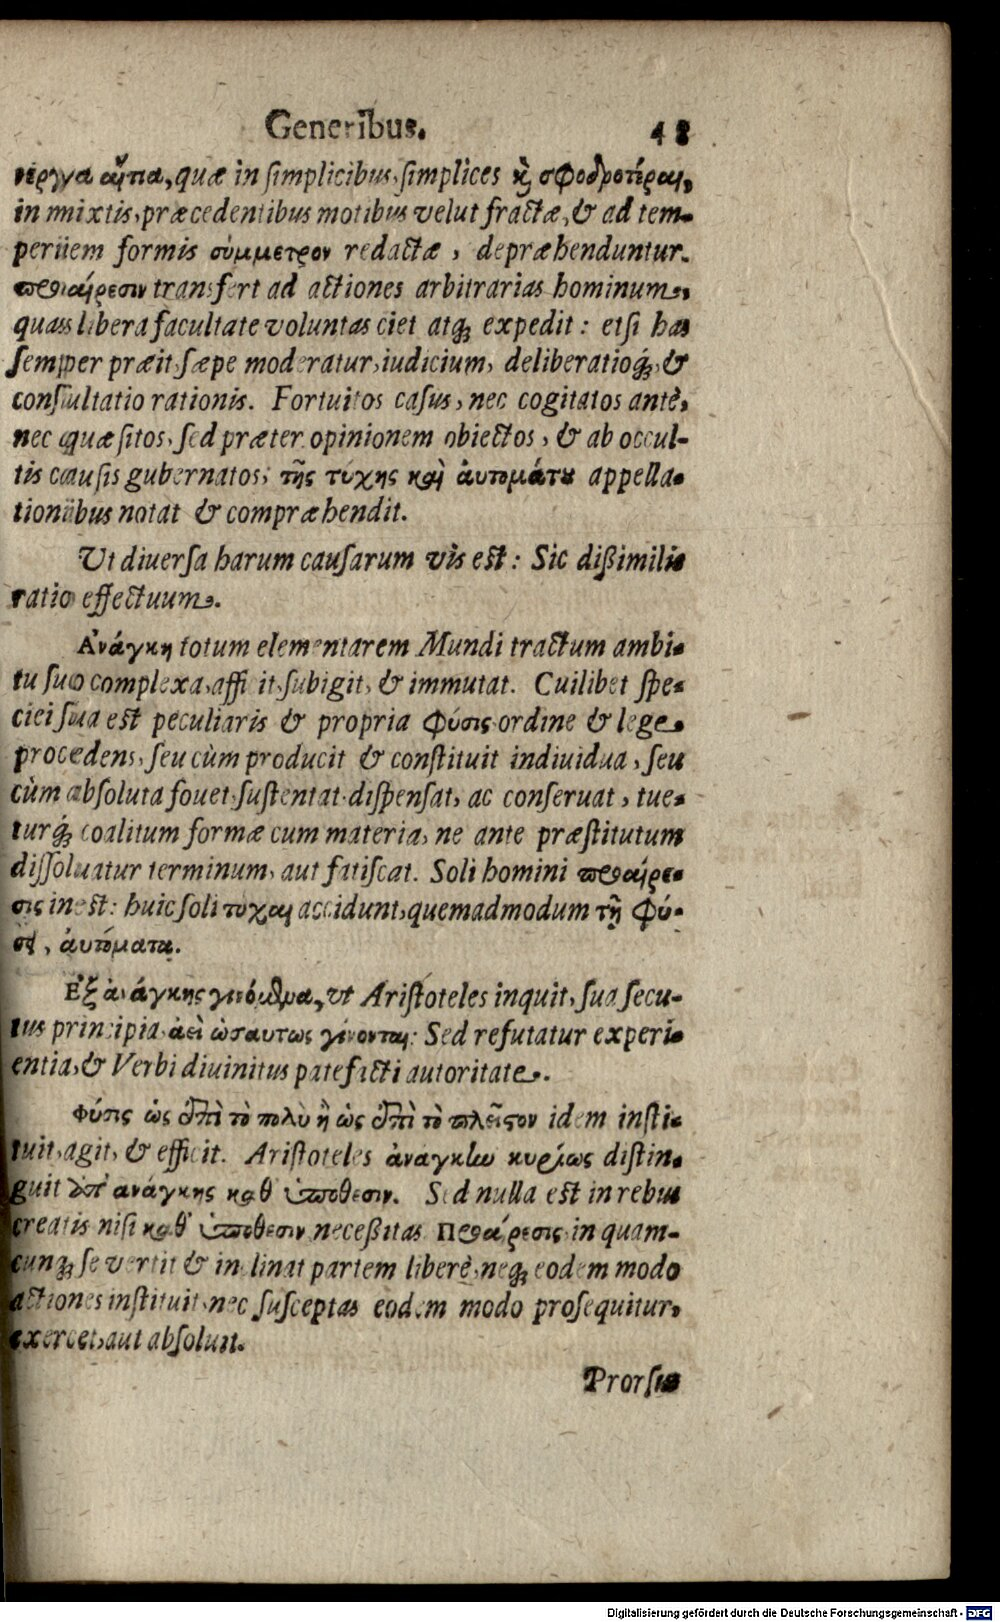 Generibus. 48
νεργγα αἴτια, quæ in ſimplicibus, ſimplices κὶ σφοδρότεραι,
in mixtis, præcedentibus motibus velut fractæ, & ad tem-
periiem formis σύμμετρον redactæ, depræhenduntur.
προαίρεσιν transfert ad actiones arbitrarias hominum,
quas libera facultate voluntas ciet atq́; expedit: etſi has
ſemper præit, ſæpe moderatur, iudicium, deliberatioq́;, &
conſultatio rationis. Fortuitos caſus, nec cogitatos antè,
nec quæſitos, ſed præter opinionem obiectos, & ab occul-
tis cauſis gubernatos; τῆς τύχης καὶ ἀυτομάτȣ appella-
tionibus notat & compræhendit.
Ut diverſa harum cauſarum vis est: Sic dißimilis
ratio effectuum.
Ανάγκη totum elementarem Mundi tractum ambi-
tu ſuo complexa, afficit, ſubigit, & immutat. Cuilibet ſpe-
ciei ſua est peculiaris & propria φύσις ordine & lege
procedens, ſeu cùm producit & conſtituit individua, ſeu
cùm abſoluta fovet, ſuſtentat, diſpenſat, ac conſeruat, tue-
turq́; coalitum formæ cum materia, ne ante præſtitutum
diſſolvatur terminum, aut fatiſcat. Soli homini προαίρε-
σις inest: huic ſoli τύχαι accidunt, quemadmodum τῇ φύ-
σει, ἀυτόματα.
Εξ ἀνάγκης γινόμενα, ut Ariſtoteles inquit, ſua ſecu-
tus principia ἀεὶ ὡσαυτως γίνονται: Sed refutatur experi-
entia, & Verbi divinitus patefacti autoritate.
Φύσις ὡς ἐπὶ τὸ πολὺ ἢ ὡς ἐπὶ τὸ πλεῖστον idem inſti-
tuit, agit, & efficit. Ariſtoteles ἀναγκὼ κυρίως diſtin-
guit ἀπ' ἀνάγκης καθ' ὑπόθεσιν. Sed nulla est in rebus
creatis niſi καθ' ὑπόθεσιν neceßitas Προαίρεσις in quam-
cunq́; ſe vertit & inclinat partem liberè, neq́; eodem modo
actiones inſtituit, nec ſuſceptas eodem modo proſequitur,
exercet, aut abſoluit.
Prorſus
Digitalisierung gefördert durch die Deutsche Forschungsgemeinschaft - DFG